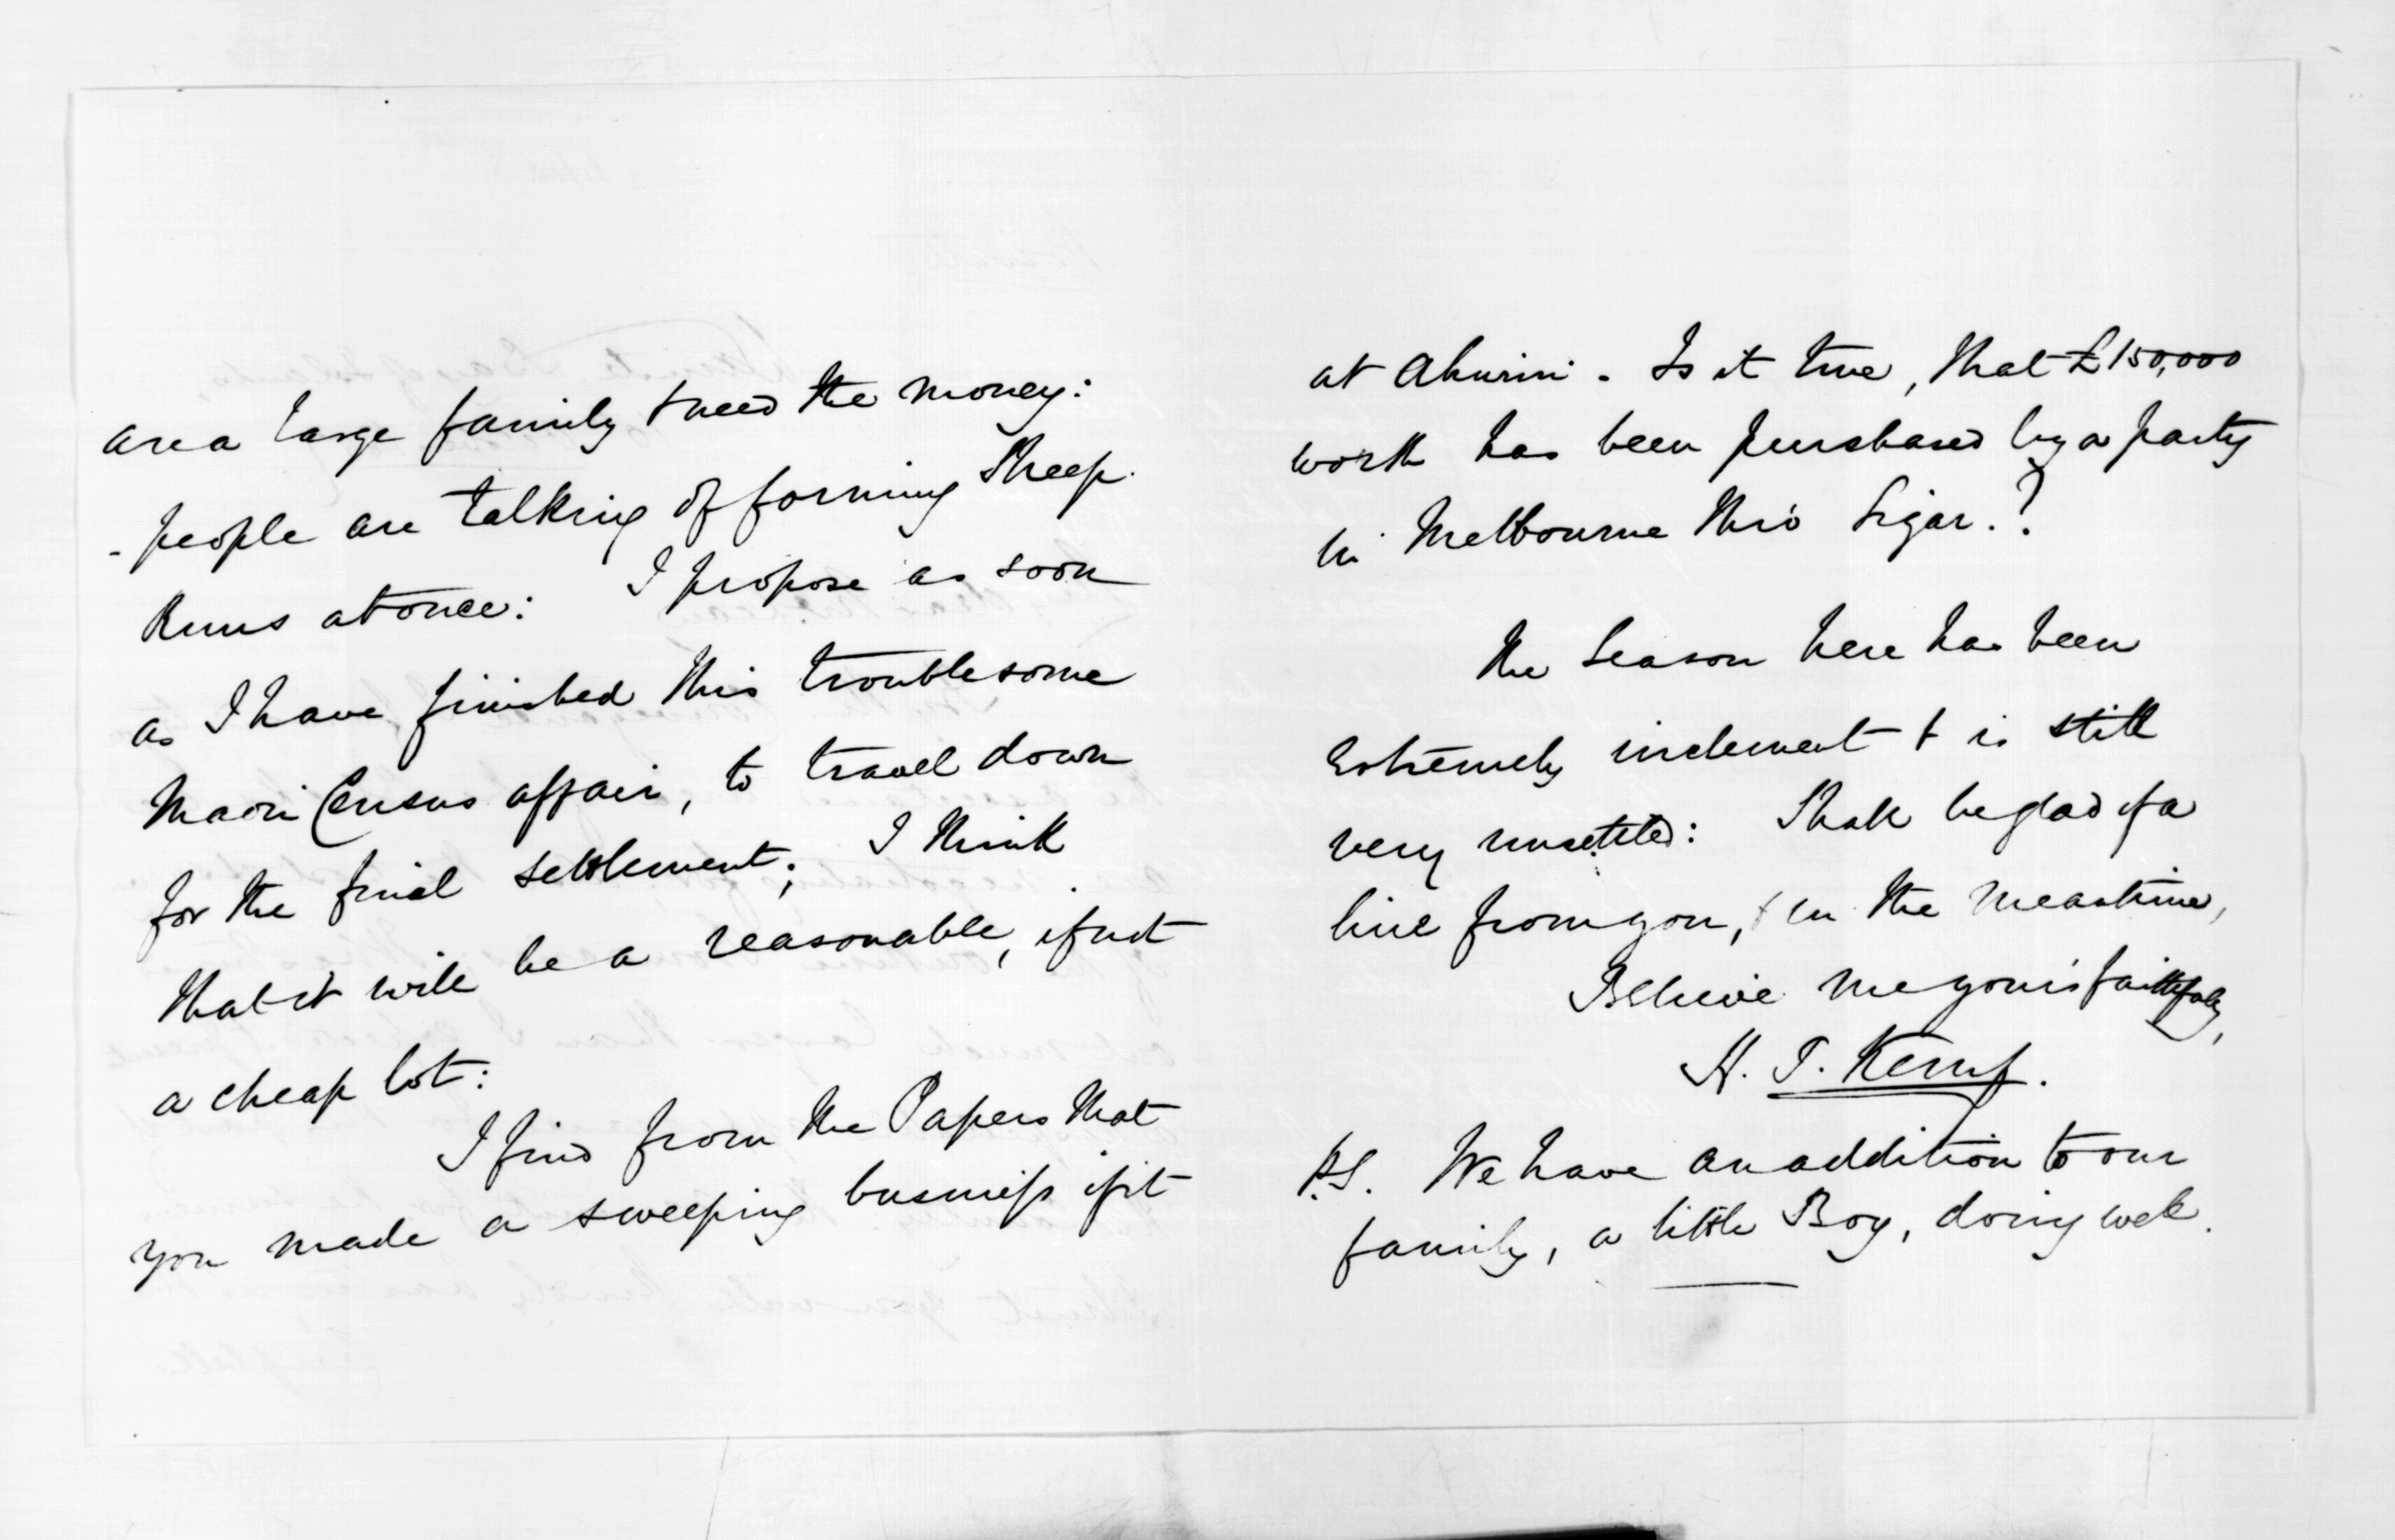 are a large family & need the money:
- people are talking of forming Sheep
Runs at once: I propose as soon
as I have finished this troublesome
Maori Census affair, to travel down
for the final settlement; I think
that it will be a reasonable, if not
a cheap lot:
I find from the Papers that
you made a sweeping business if it
at Ahuriri. Is it true, that £150,000
worth has been purchased by a party
in Melbourne thro' Ligar.?
The Season here has been
extremely inclement & is still
very unsettled: Shall be glad of a
line from you, & in the meantime,
Believe me yours faithfully,
H. T. Kemp.
P.S. We have an addition to our
family, a little Boy, doing well.